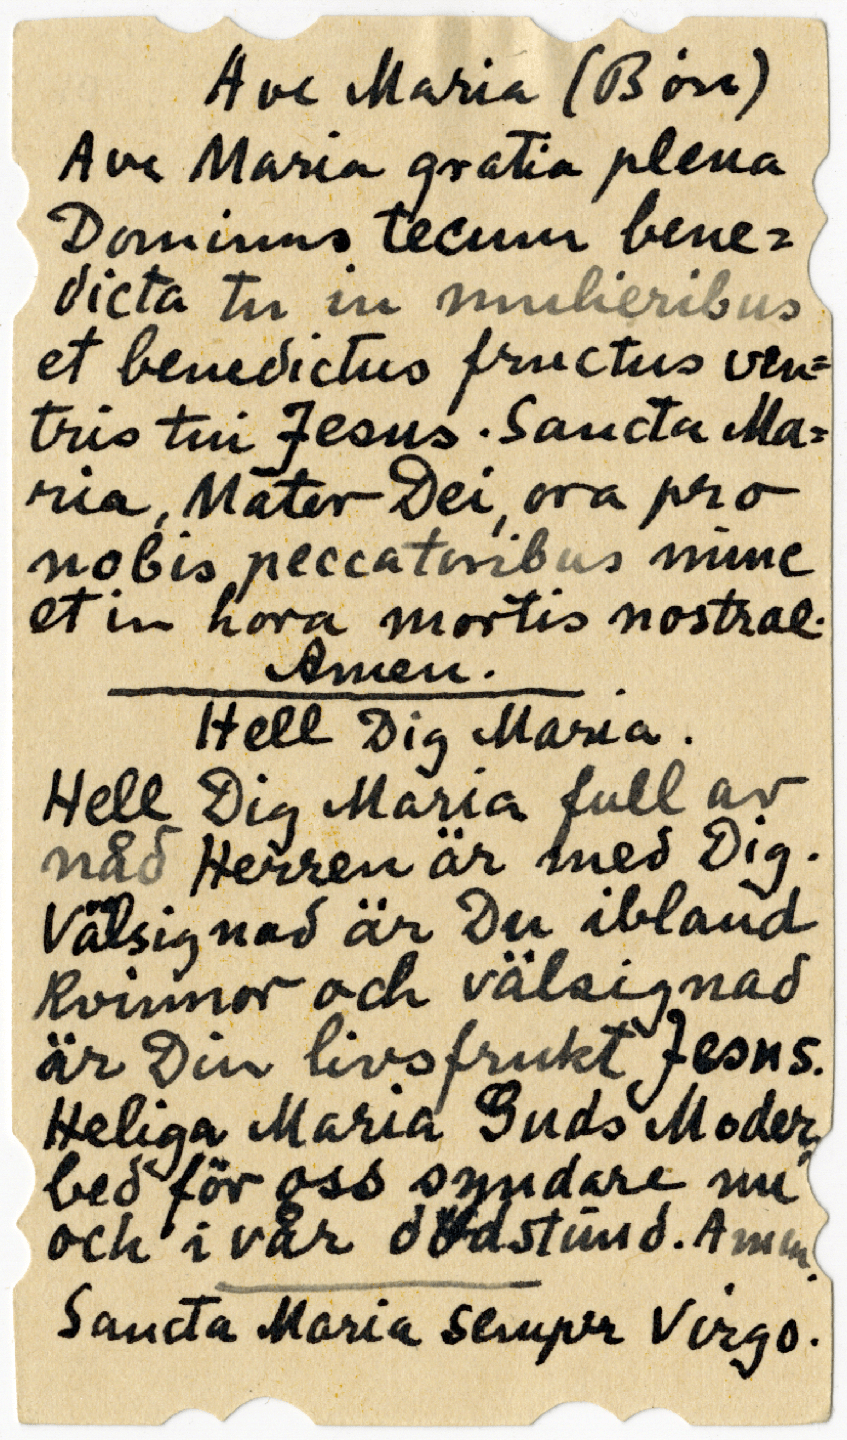 Ave Maria (Bön)
Ave Maria gratia plena
Dominus tecum bene=
dicta tu in mulieribus
et benedictus fructus ven=
tris tui Jesus. Sancta Ma=
ria, Mater Dei, ora pro
nobis peccatoribus nunc
et in hora mortis nostrae.
Amen.
Hell Dig Maria.
Hell Dig Maria full av
nåd Herren är med Dig.
Välsignad är Du ibland
kvinnor och välsignad
är Din livsfrukt Jesus.
Heliga Maria Guds Moder,
bed för oss syndare nu
och i vår dödstund. Amen.
Sancta Maria semper Virgo.